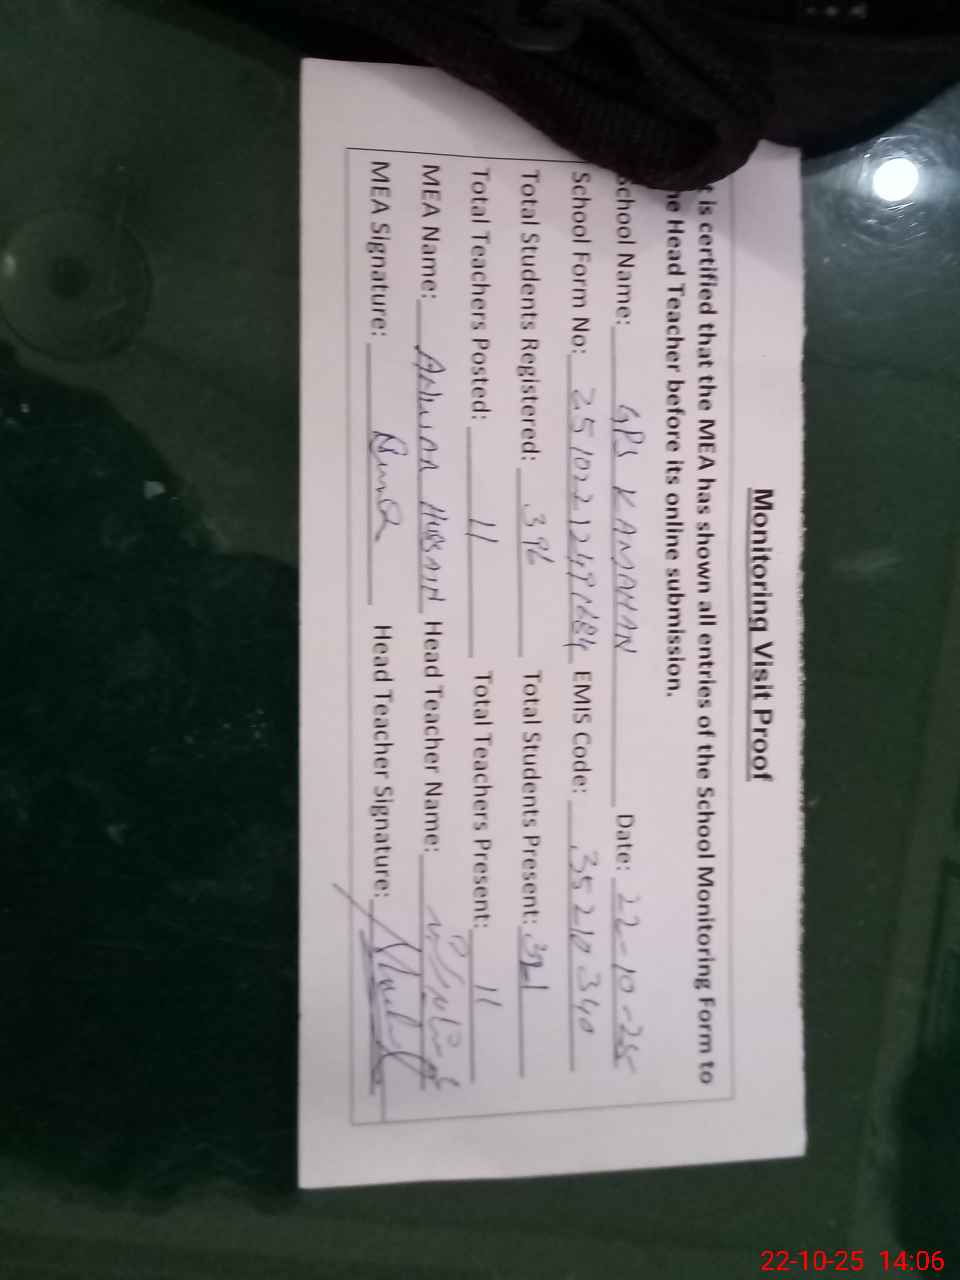 Monitoring Visit Proof
t is certified that the MEA has shown all entries of the School Monitoring Form to
he Head Teacher before its online submission.
School Name: GPS KAMAHAN Date: 22-10-25
School Form No: EMIS Code: 35210340
Total Students Registered: 396 Total Students Present: 321
Total Teachers Posted: 11 Total Teachers Present: 11
MEA Name: ANWAR HUSSAIN Head Teacher Name:
MEA Signature: Head Teacher Signature:
22-10-25 14:06